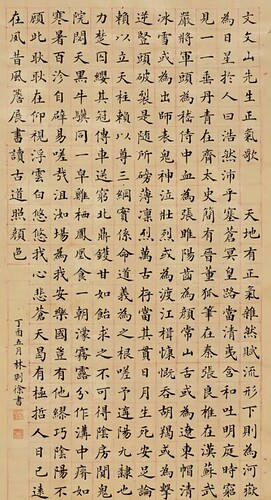 文文山先生正氣歌 天地有正氣雜然賦流形下則
為日星於人曰浩然沛乎塞蒼冥皇路當清夷含和吐明庭時窮
見一一垂丹青在齊太史簡在晉董狐筆在秦張良椎在漢蘇武
嚴將軍頭為嵇侍中血為張睢陽齒為顏常山舌或為遼東帽清
冰雪或為出師表鬼神泣壯烈或為渡江楫慷慨吞胡羯或為擊
逆豎頭破裂是氣所磅礴凜烈萬古存當其貫日月生死安足論
賴以立天柱賴以尊三綱實係命道義為之根嗟予遘陽九隸也
力楚囚纓其冠傳車送窮北鼎鑊甘如飴求之不可得陰房闃鬼
院閟天黑牛驥同一皁雞棲鳳凰食一朝濛霧露分作溝中瘠如
寒暑百沴自辟易嗟哉沮洳場為我安樂國豈有他繆巧陰陽不
顧此耿耿在仰視浮雲白悠悠我心悲蒼天曷有極哲人日已遠
在夙昔風簷展書讀古道照顏色
丁酉五月林則徐書